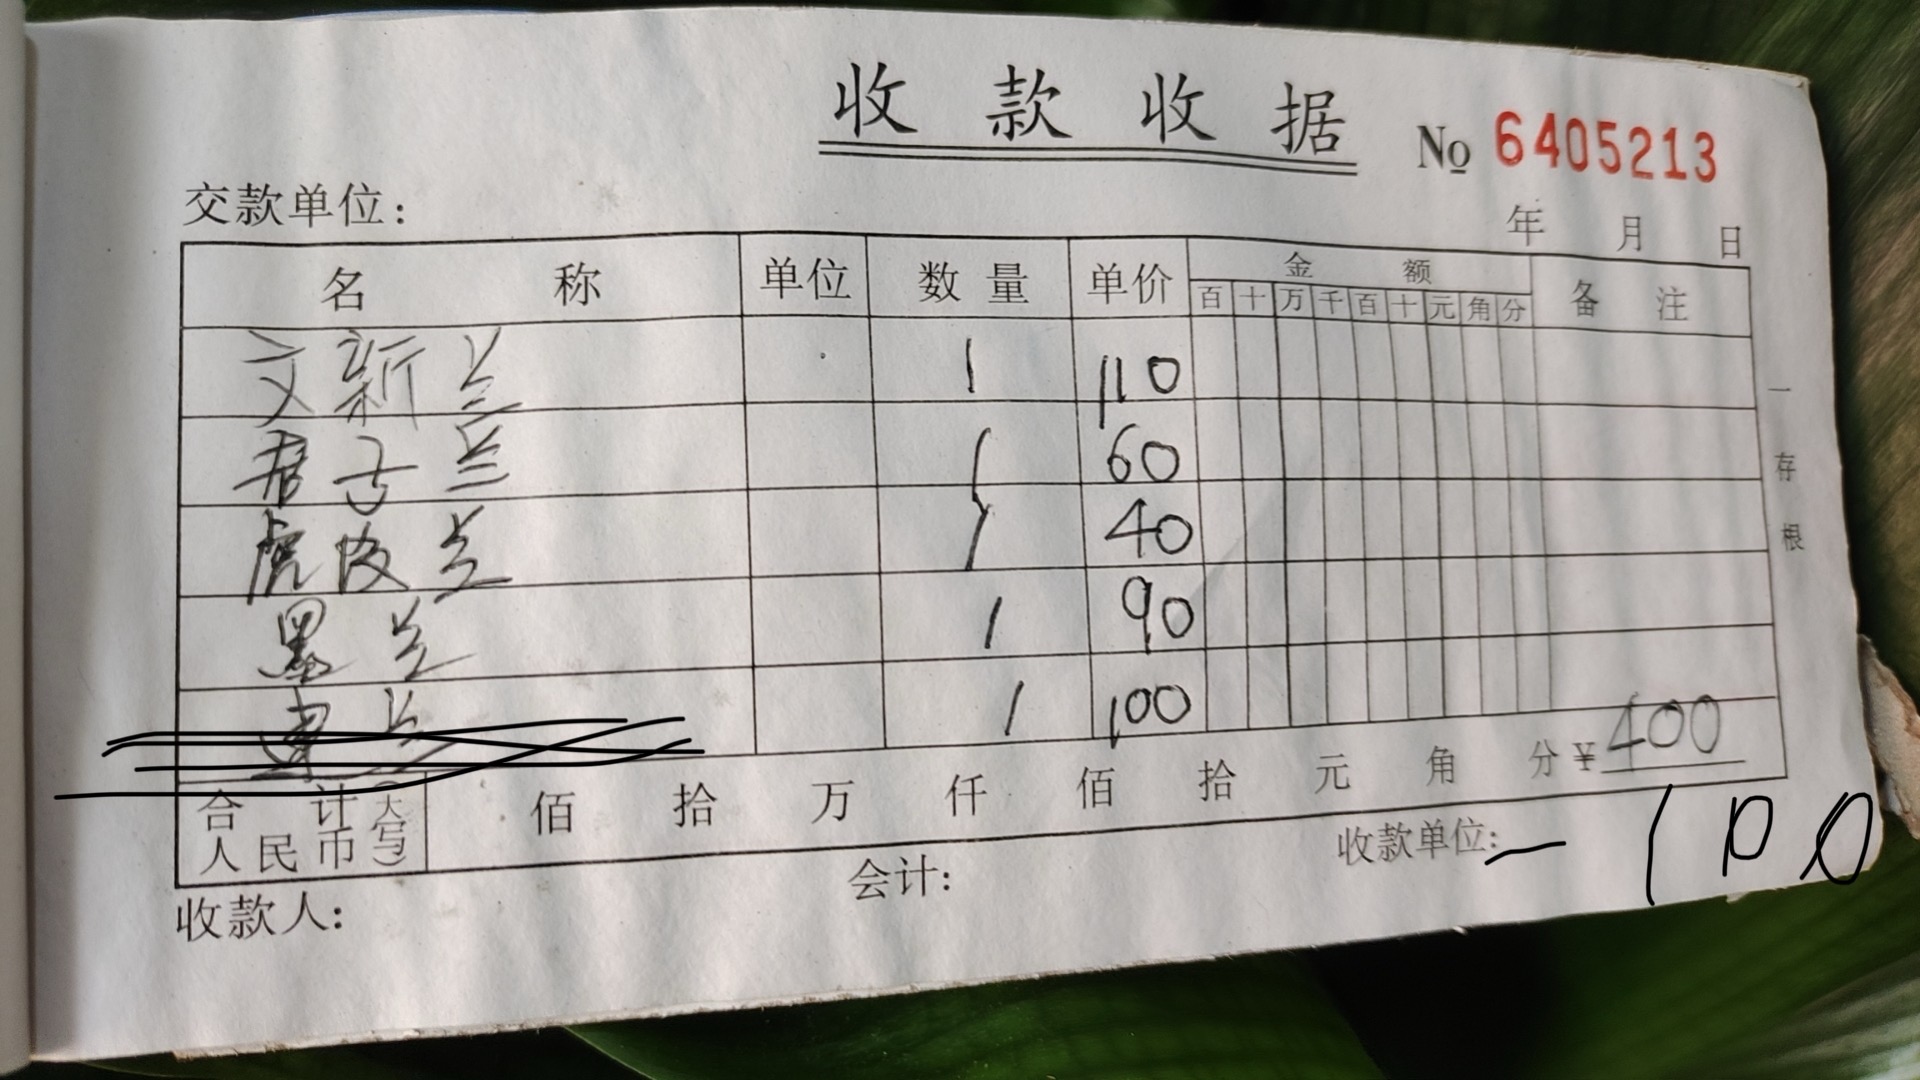 收款收据 No 6405213
交款单位: 年 月 日
名称 单位 数量 单价 金额 备注
百 十 万 千 百 十 元 角 分
文新兰 1 110
君子兰 1 60
虎皮兰 1 40
墨兰 1 90
建兰 1 100
合计 人民币 (大写) 佰 拾 万 仟 佰 拾 元 角 分 ¥400
一存根
收款人: 会计: 收款单位: -100